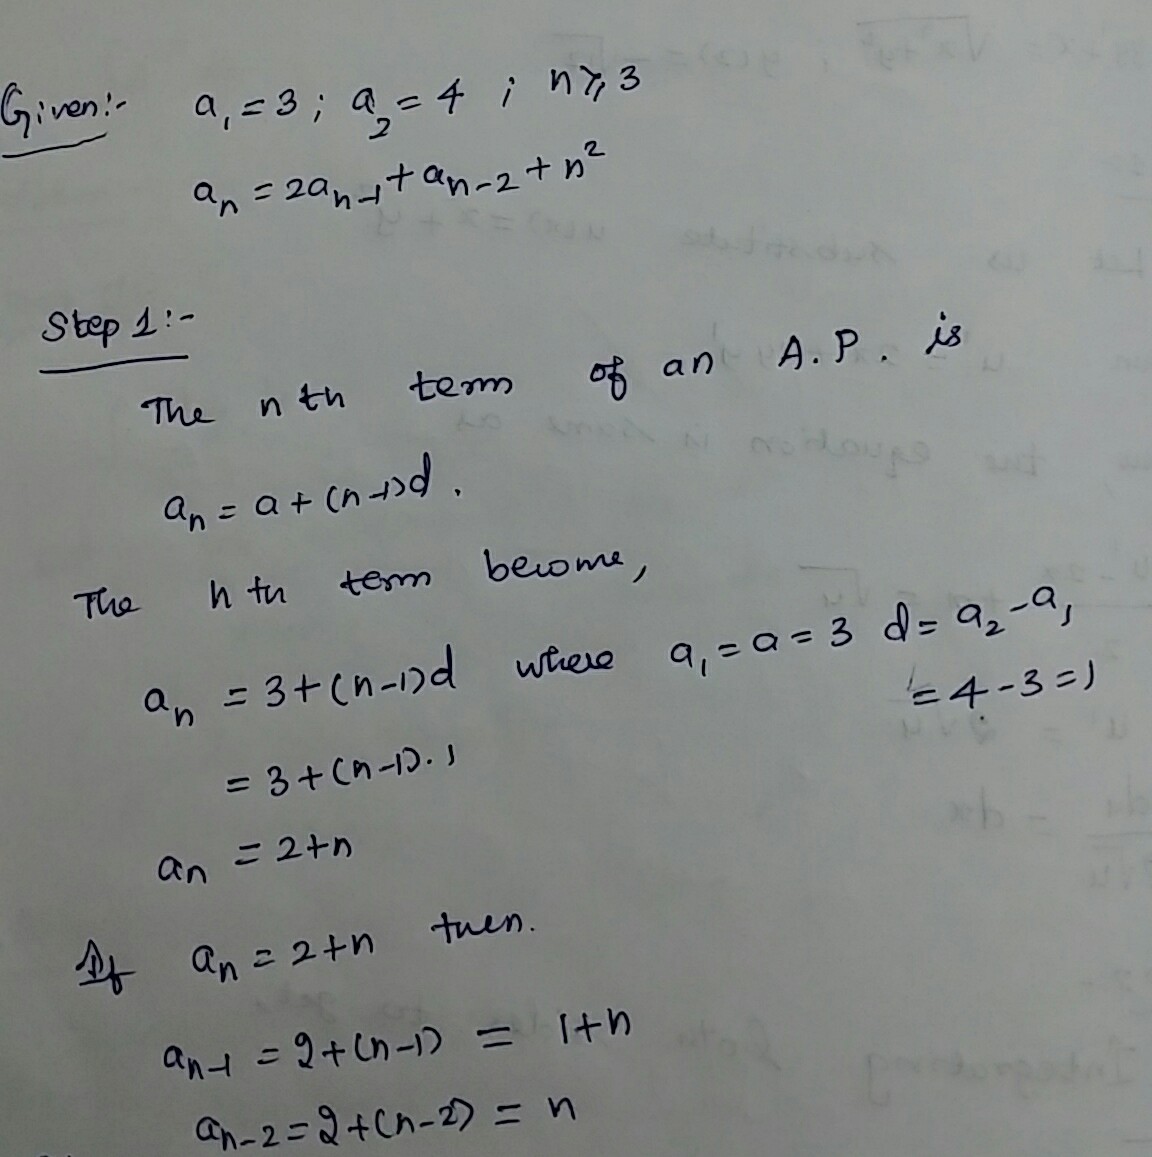 Given:- a₁ = 3 ; a₂ = 4 ; n ≥ 3
aₙ = 2aₙ₋₁ + aₙ₋₂ + n²
Step 1:-
The nth term of an A.P. is
aₙ = a + (n-1)d.
The nth term become,
aₙ = 3+(n-1)d where a₁ = a = 3 d = a₂ - a₁
= 4 - 3 = 1
= 3+(n-1).1
aₙ = 2+n
If aₙ = 2+n then.
aₙ₋₁ = 2+(n-1) = 1+n
aₙ₋₂ = 2+(n-2) = n